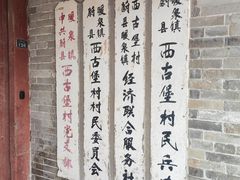 中共蔚县暖泉镇西古堡村党支部
蔚县暖泉镇西古堡村村民委员会
蔚县暖泉镇西古堡村经济联合服务社
蔚县暖泉镇西古堡村民兵